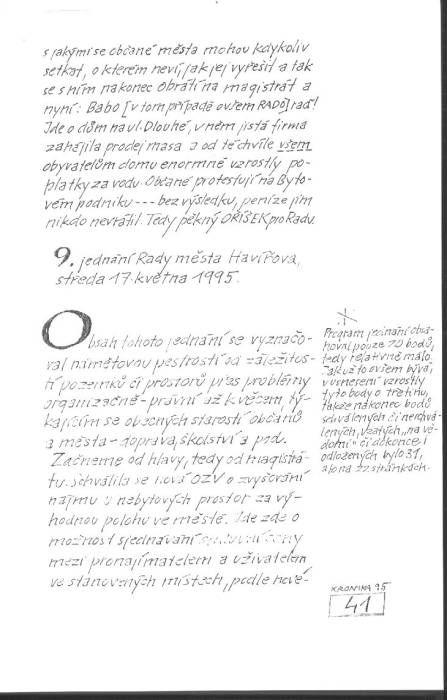 s jakými se občané města mohou kdykoliv
setkat, o kterém neví, jak jej vyřešit a tak
se s ním nakonec obrátí na magistrát a
nyní: Babo [v tom případě ovšem RADO] raď!
Jde o dům na ul. Dlouhé, v něm jistá firma
zahájila prodej masa a od té chvíle všem
obyvatelům domu enormně vzrostly po-
platky za vodu. Občané protestují na Byto-
vém podniku --- bez výsledku, peníze jim
nikdo nevrátil. Tedy pěkný OŘÍŠEK pro Radu.
9. jednání Rady města Havířova,
středa 17. května 1995.
Obsah tohoto jednání se vyznačo-
val námětovou pestrostí od záležitos-
tí pozemků či prostorů přes problémy
organizačně-právní až k věcem, tý-
kajícím se obecných starostí občanů
a města - doprava, školství a pod.
Začneme od hlavy, tedy od magistrá-
tu. Schválila se nová OZV o zvyšování
nájmu u nebytových prostor za vý-
hodnou polohu ve městě. Jde zde o
možnost sjednávání ceny
mezi pronajímatelem a uživatelem
ve stanovených místech, podle nové-
Program jednání obsa-
hoval pouze 70 bodů,
tedy relativně málo.
Jak už to ovšem bývá,
v usnesení vzrostly
tyto body o třetinu,
takže nakonec bodů
schválených či neschvá-
lených, vzatých „na vě-
domí" či dokonce i
odložených bylo 31,
a to na 22 stránkách.
KRONIKA 95
41